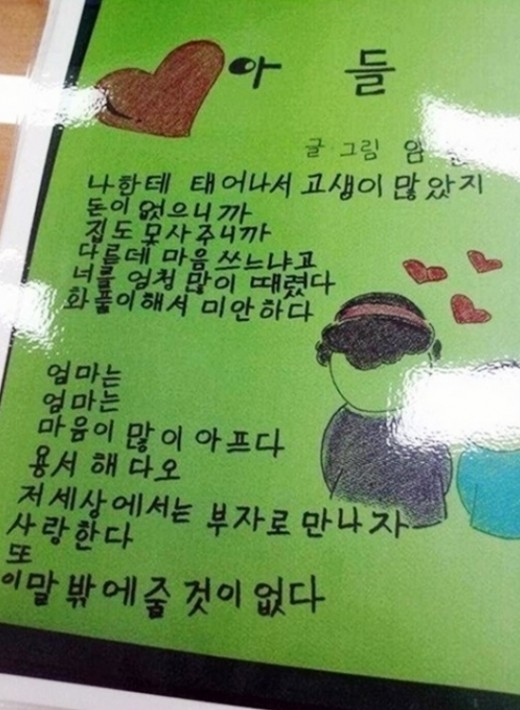 아 들
글 그림 암
나한테 태어나서 고생이 많았지
돈이 없으니까
집도 못사주니까
다른데 마음 쓰느냐고
너를 엄청 많이 때렸다
화풀이해서 미안하다
엄마는
엄마는
마음이 많이 아프다
용서 해 다오
저세상에서는 부자로 만나자
사랑한다
또
이말 밖에 줄 것이 없다